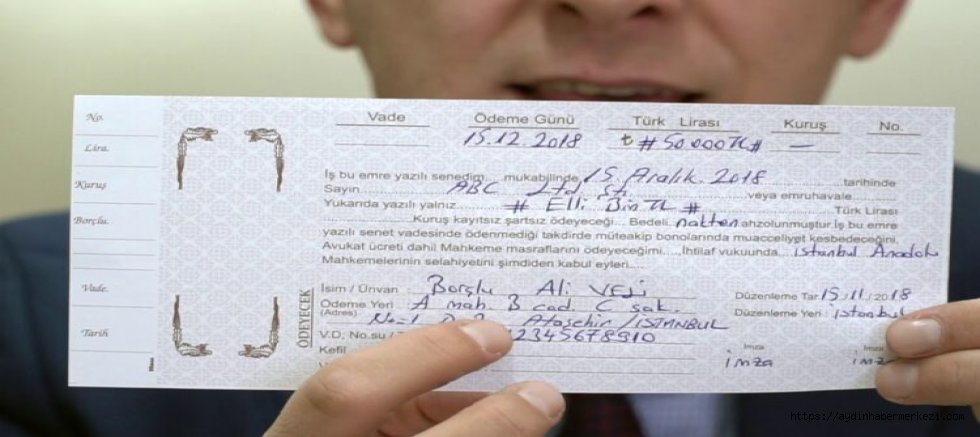 No.
Lira.
Kuruş
Borçlu.
Vade.
Tarih
Vade Ödeme Günü Türk Lirası Kuruş No.
15.12.2018 ₺ # 50.000TL# —
İş bu emre yazılı senedim.... mukabilinde 15 Aralık 2018 tarihinde
Sayın ABC Ltd Şti. veya emruhavale
Yukarıda yazılı yalnız # Elli Bin TL # Türk Lirası
Kuruş kayıtsız şartsız ödeyeceği... Bedeli nakten ahzolunmuştur.İş bu emre
yazılı senet vadesinde ödenmediği takdirde müteakip bonolarında muacceliyet kesbedeceğini,
Avukat ücreti dahil Mahkeme masraflarını ödeyeceğimi.... İhtilaf vukuunda istanbul Anadolu
Mahkemelerinin selahiyetini şimdiden kabul eyleri....
ÖDEYECEK
İsim / Ünvan : Borçlu Ali VELİ
Düzenleme Tar 15/11/2018
Ödeme Yeri : A mah. B cad. C sok.
(Adres) No=1 Ataşehir/İSTANBUL
Düzenleme Yeri : istanbul
V.D. No.su 2345678910
Kefil
İmza İmza
imza imza
https://aydinhabermerkezi.com